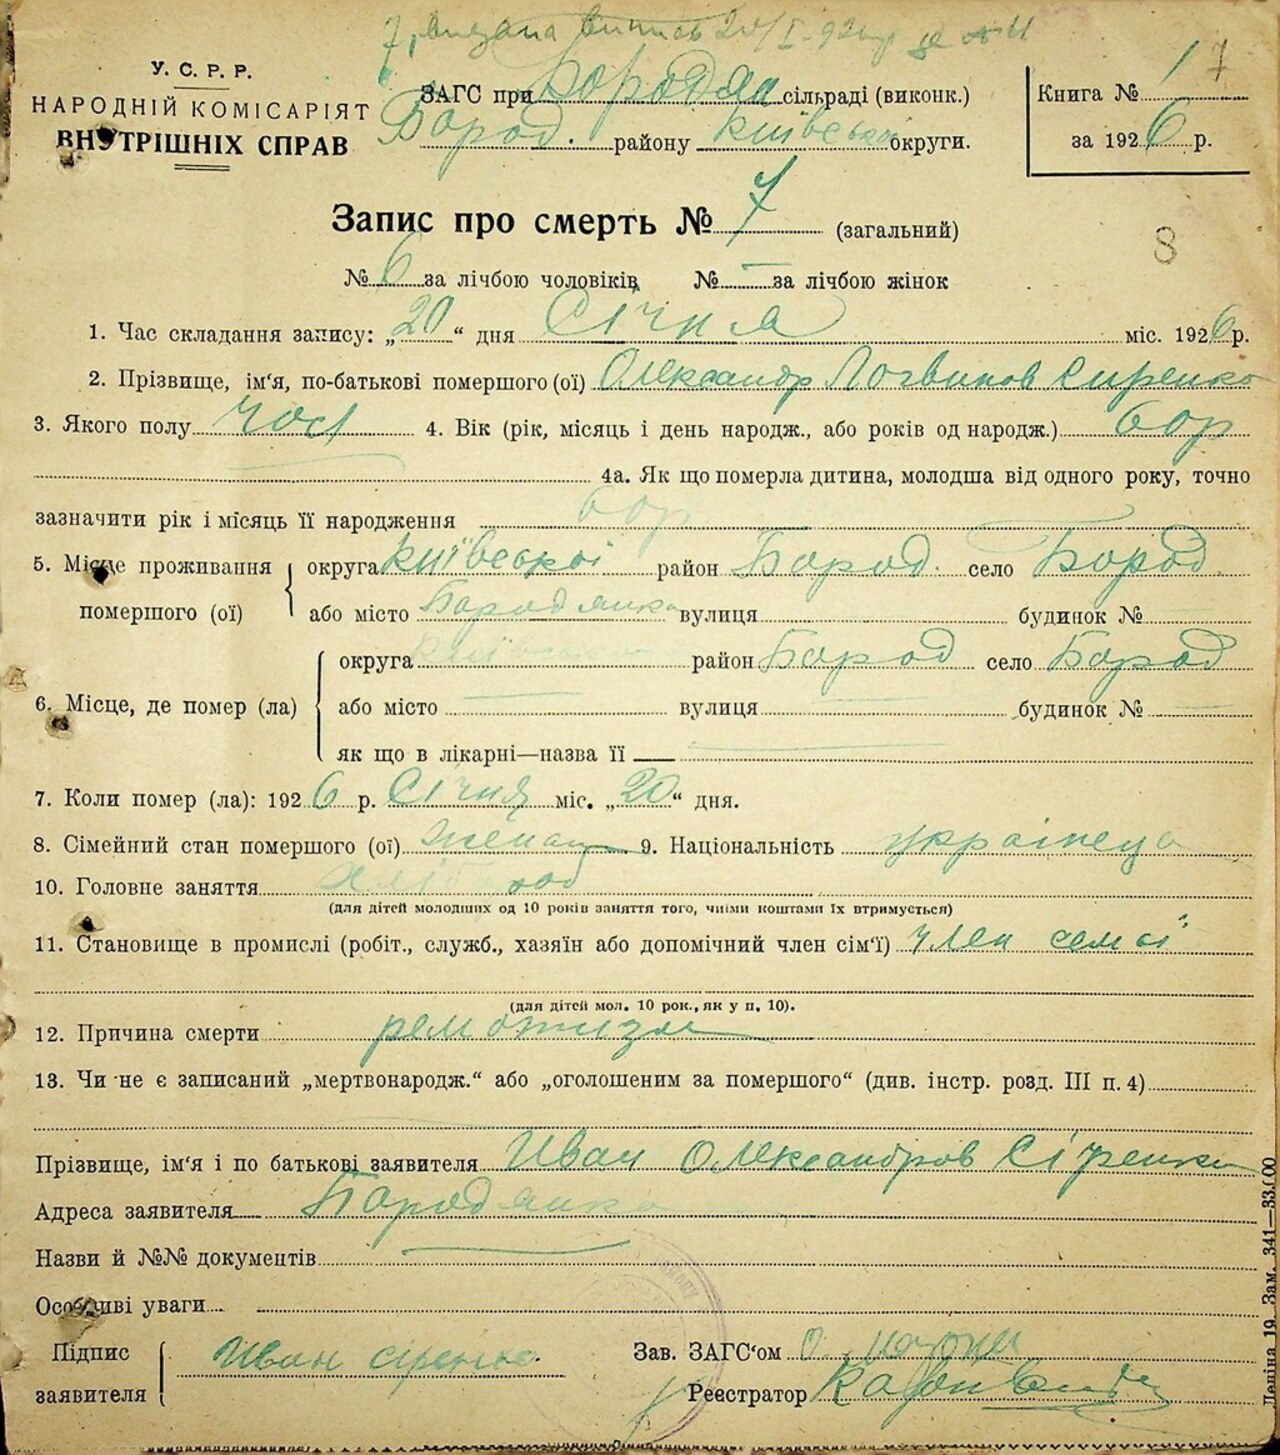 У. С. Р. Р.
НАРОДНІЙ КОМІСАРІЯТ
ВНУТРІШНІХ СПРАВ
ЗАГС при Бородян сільраді (виконк.)
Бород. району Київської округи.
Книга № 1
за 1926 р.
7
Запис про смерть № 7 (загальний)
8
№ 6 за лічбою чоловіків № — за лічбою жінок
1. Час складання запису: „20“ дня Січня міс. 1926 р.
2. Прізвище, ім‘я, по-батькові помершого (ої) Олександр Логвинов Сиренко
3. Якого полу чол 4. Вік (рік, місяць і день народж., або років од народж.) 60 р
4а. Як що померла дитина, молодша від одного року, точно
зазначити рік і місяць її народження 60 р
5. Місце проживання помершого (ої) округа Київської район Бород. село Бород
або місто Бородянка вулиця будинок №
6. Місце, де помер (ла) округа Київської район Бород село Бород
або місто вулиця будинок №
як що в лікарні—назва її
7. Коли помер (ла): 1926 р. Січня міс. „20“ дня.
8. Сімейний стан помершого (ої) женат 9. Національність українець
10. Головне заняття хлібороб
(для дітей молодших од 10 років заняття того, чиїми коштами їх втримується)
11. Становище в промислі (робіт., служб., хазяїн або допомічний член сім‘ї) член семьї
(для дітей мол. 10 рок., як у п. 10).
12. Причина смерти ремотизм
13. Чи не є записаний „мертвонародж.“ або „оголошеним за помершого“ (див. інстр. розд. III п. 4)
Прізвище, ім‘я і по батькові заявителя Иван Олександров Сіренко
Адреса заявителя Бородянка
Назви й №№ документів
Особливі уваги
Підпис заявителя Иван сіренко.
Зав. ЗАГС‘ом
Реестратор
19. Зам. 341—33.000